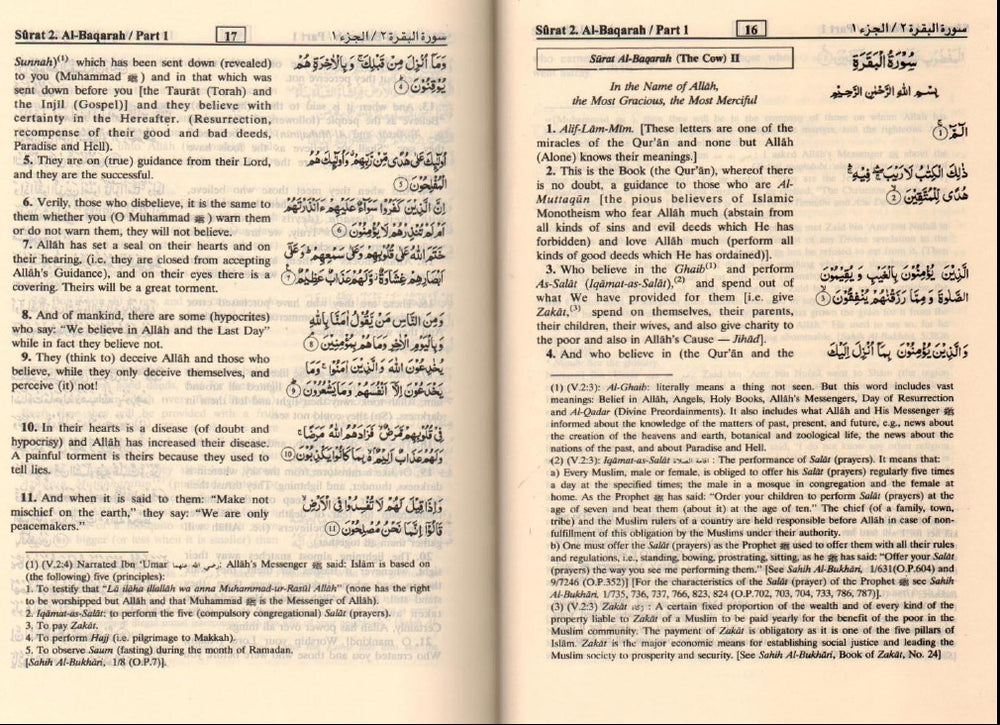 Sûrat 2. Al-Baqarah / Part 1
16
سورة البقرة ٢ / الجزء ١
Sûrat Al-Baqarah (The Cow) II
سُوْرَةُ الْبَقَرَةِ
In the Name of Allâh,
the Most Gracious, the Most Merciful
بِسْمِ اللهِ الرَّحْمٰنِ الرَّحِيْمِ
1. Alif-Lâm-Mîm. [These letters are one of the
miracles of the Qur'ân and none but Allâh
(Alone) knows their meanings.]
2. This is the Book (the Qur'ân), whereof there
is no doubt, a guidance to those who are Al-
Muttaqûn [the pious believers of Islamic
Monotheism who fear Allâh much (abstain from
all kinds of sins and evil deeds which He has
forbidden) and love Allâh much (perform all
kinds of good deeds which He has ordained)].
3. Who believe in the Ghaib(1) and perform
As-Salât (Iqâmat-as-Salât),(2) and spend out of
what We have provided for them [i.e. give
Zakât,(3) spend on themselves, their parents,
their children, their wives, and also give charity to
the poor and also in Allâh's Cause — Jihâd].
4. And who believe in (the Qur'ân and the
الٓمّٓ ۚ ①
ذٰلِكَ الْكِتٰبُ لَا رَيْبَ ۛ فِيْهِ ۛ
هُدًى لِّلْمُتَّقِيْنَ ②
الَّذِيْنَ يُؤْمِنُوْنَ بِالْغَيْبِ وَيُقِيْمُوْنَ
الصَّلٰوةَ وَمِمَّا رَزَقْنٰهُمْ يُنْفِقُوْنَ ③
وَالَّذِيْنَ يُؤْمِنُوْنَ بِمَآ اُنْزِلَ اِلَيْكَ
(1) (V.2:3) Al-Ghaib: literally means a thing not seen. But this word includes vast
meanings: Belief in Allâh, Angels, Holy Books, Allâh's Messengers, Day of Resurrection
and Al-Qadar (Divine Preordainments). It also includes what Allâh and His Messenger ﷺ
informed about the knowledge of the matters of past, present, and future, e.g., news about
the creation of the heavens and earth, botanical and zoological life, the news about the
nations of the past, and about Paradise and Hell.
(2) (V.2:3): Iqâmat-as-Salât إقامة الصلاة : The performance of Salât (prayers). It means that:
a) Every Muslim, male or female, is obliged to offer his Salât (prayers) regularly five times
a day at the specified times; the male in a mosque in congregation and the female at
home. As the Prophet ﷺ has said: "Order your children to perform Salât (prayers) at the
age of seven and beat them (about it) at the age of ten." The chief (of a family, town,
tribe) and the Muslim rulers of a country are held responsible before Allâh in case of non-
fulfillment of this obligation by the Muslims under their authority.
b) One must offer the Salât (prayers) as the Prophet ﷺ used to offer them with all their rules
and regulations, i.e., standing, bowing, prostrating, sitting, as he ﷺ has said: "Offer your Salât
(prayers) the way you see me performing them." [See Sahih Al-Bukhâri, 1/631(O.P.604) and
9/7246 (O.P.352)] [For the characteristics of the Salât (prayer) of the Prophet ﷺ see Sahih
Al-Bukhâri, 1/735, 736, 737, 766, 823, 824 (O.P.702, 703, 704, 733, 786, 787)].
(3) (V.2:3) Zakât زكاة : A certain fixed proportion of the wealth and of every kind of the
property liable to Zakât of a Muslim to be paid yearly for the benefit of the poor in the
Muslim community. The payment of Zakât is obligatory as it is one of the five pillars of
Islâm. Zakât is the major economic means for establishing social justice and leading the
Muslim society to prosperity and security. [See Sahih Al-Bukhâri, Book of Zakât, No. 24]
Sûrat 2. Al-Baqarah / Part 1
17
سورة البقرة ٢ / الجزء ١
Sunnah)(1) which has been sent down (revealed)
to you (Muhammad ﷺ) and in that which was
sent down before you [the Taurât (Torah) and
the Injîl (Gospel)] and they believe with
certainty in the Hereafter. (Resurrection,
recompense of their good and bad deeds,
Paradise and Hell).
5. They are on (true) guidance from their Lord,
and they are the successful.
6. Verily, those who disbelieve, it is the same to
them whether you (O Muhammad ﷺ) warn them
or do not warn them, they will not believe.
7. Allâh has set a seal on their hearts and on
their hearing, (i.e. they are closed from accepting
Allâh's Guidance), and on their eyes there is a
covering. Theirs will be a great torment.
8. And of mankind, there are some (hypocrites)
who say: "We believe in Allâh and the Last Day"
while in fact they believe not.
9. They (think to) deceive Allâh and those who
believe, while they only deceive themselves, and
perceive (it) not!
10. In their hearts is a disease (of doubt and
hypocrisy) and Allâh has increased their disease.
A painful torment is theirs because they used to
tell lies.
11. And when it is said to them: "Make not
mischief on the earth," they say: "We are only
peacemakers."
وَمَآ اُنْزِلَ مِنْ قَبْلِكَ ۚ وَبِالْاٰخِرَةِ هُمْ
يُوْقِنُوْنَ ④
اُولٰٓئِكَ عَلٰى هُدًى مِّنْ رَّبِّهِمْ ۙ وَاُولٰٓئِكَ هُمُ
الْمُفْلِحُوْنَ ⑤
اِنَّ الَّذِيْنَ كَفَرُوْا سَوَآءٌ عَلَيْهِمْ ءَاَنْذَرْتَهُمْ
اَمْ لَمْ تُنْذِرْهُمْ لَا يُؤْمِنُوْنَ ⑥
خَتَمَ اللهُ عَلٰى قُلُوْبِهِمْ وَعَلٰى سَمْعِهِمْ ۗ وَعَلٰٓى
اَبْصَارِهِمْ غِشَاوَةٌ ۫ وَّلَهُمْ عَذَابٌ عَظِيْمٌ ⑦
وَمِنَ النَّاسِ مَنْ يَّقُوْلُ اٰمَنَّا بِاللهِ
وَبِالْيَوْمِ الْاٰخِرِ وَمَا هُمْ بِمُؤْمِنِيْنَ ⑧
يُخٰدِعُوْنَ اللهَ وَالَّذِيْنَ اٰمَنُوْا ۚ وَمَا
يَخْدَعُوْنَ اِلَّآ اَنْفُسَهُمْ وَمَا يَشْعُرُوْنَ ⑨
فِيْ قُلُوْبِهِمْ مَّرَضٌ ۙ فَزَادَهُمُ اللهُ مَرَضًا ۚ
وَلَهُمْ عَذَابٌ اَلِيْمٌ ۢ بِمَا كَانُوْا يَكْذِبُوْنَ ⑩
وَاِذَا قِيْلَ لَهُمْ لَا تُفْسِدُوْا فِي الْاَرْضِ ۙ
قَالُوْٓا اِنَّمَا نَحْنُ مُصْلِحُوْنَ ⑪
(1) (V.2:4) Narrated Ibn 'Umar رضي الله عنهما: Allâh's Messenger ﷺ said: Islâm is based on
(the following) five (principles):
1. To testify that "Lâ ilâha illallâh wa anna Muhammad-ur-Rasûl Allâh" (none has the right
to be worshipped but Allâh and that Muhammad ﷺ is the Messenger of Allâh).
2. Iqâmat-as-Salât: to perform the five (compulsory congregational) Salât (prayers).
3. To pay Zakât.
4. To perform Hajj (i.e. pilgrimage to Makkah).
5. To observe Saum (fasting) during the month of Ramadan.
[Sahih Al-Bukhâri, 1/8 (O.P.7)].